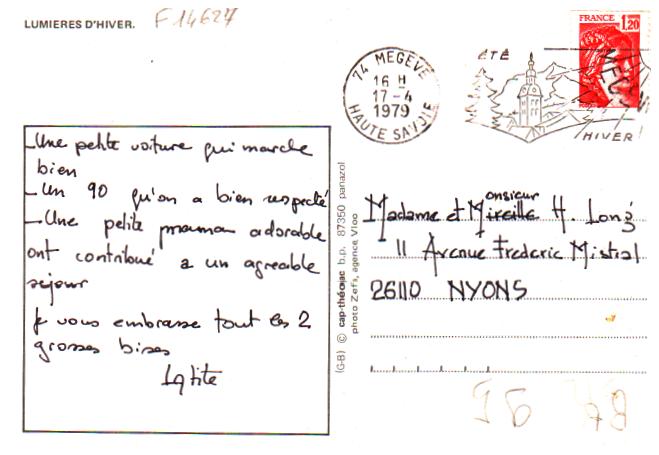 LUMIERES D'HIVER.
F 14627
74 MEGEVE
16 H
17-4
1979
HAUTE SAVOIE
ÉTÉ
HIVER
MEGEV
FRANCE 1,20
_Une petite voiture qui marche
bien
_Un 90 qu'on a bien respecté
_Une petite maman adorable
ont contribué a un agreable
sejour
Je vous embrasse tout les 2
grosses bises
(G-B) © cap-théojac b.p. 87350 panazol
photo Zefa, agence Vloo
Madame et Monsieur Mireille H. Long
11 Avenue Frederic Mistral
26110 NYONS